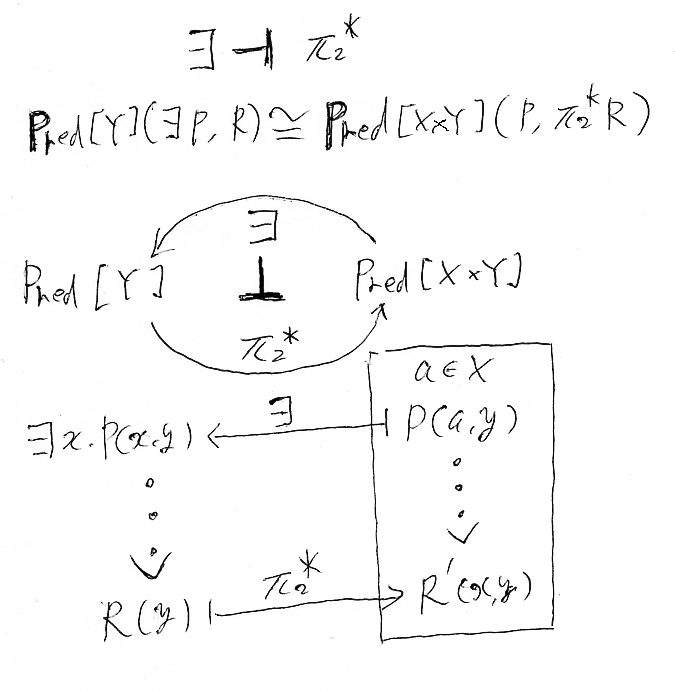 ∃ ⊣ π₂*
Pred[Y](∃P, R) ≅ Pred[X×Y](P, π₂*R)
∃
Pred[Y] ⊥ Pred[X×Y]
π₂*
a∈X
∃x.P(x,y) ∃ P(a,y)
R(y) π₂* R'(x,y)